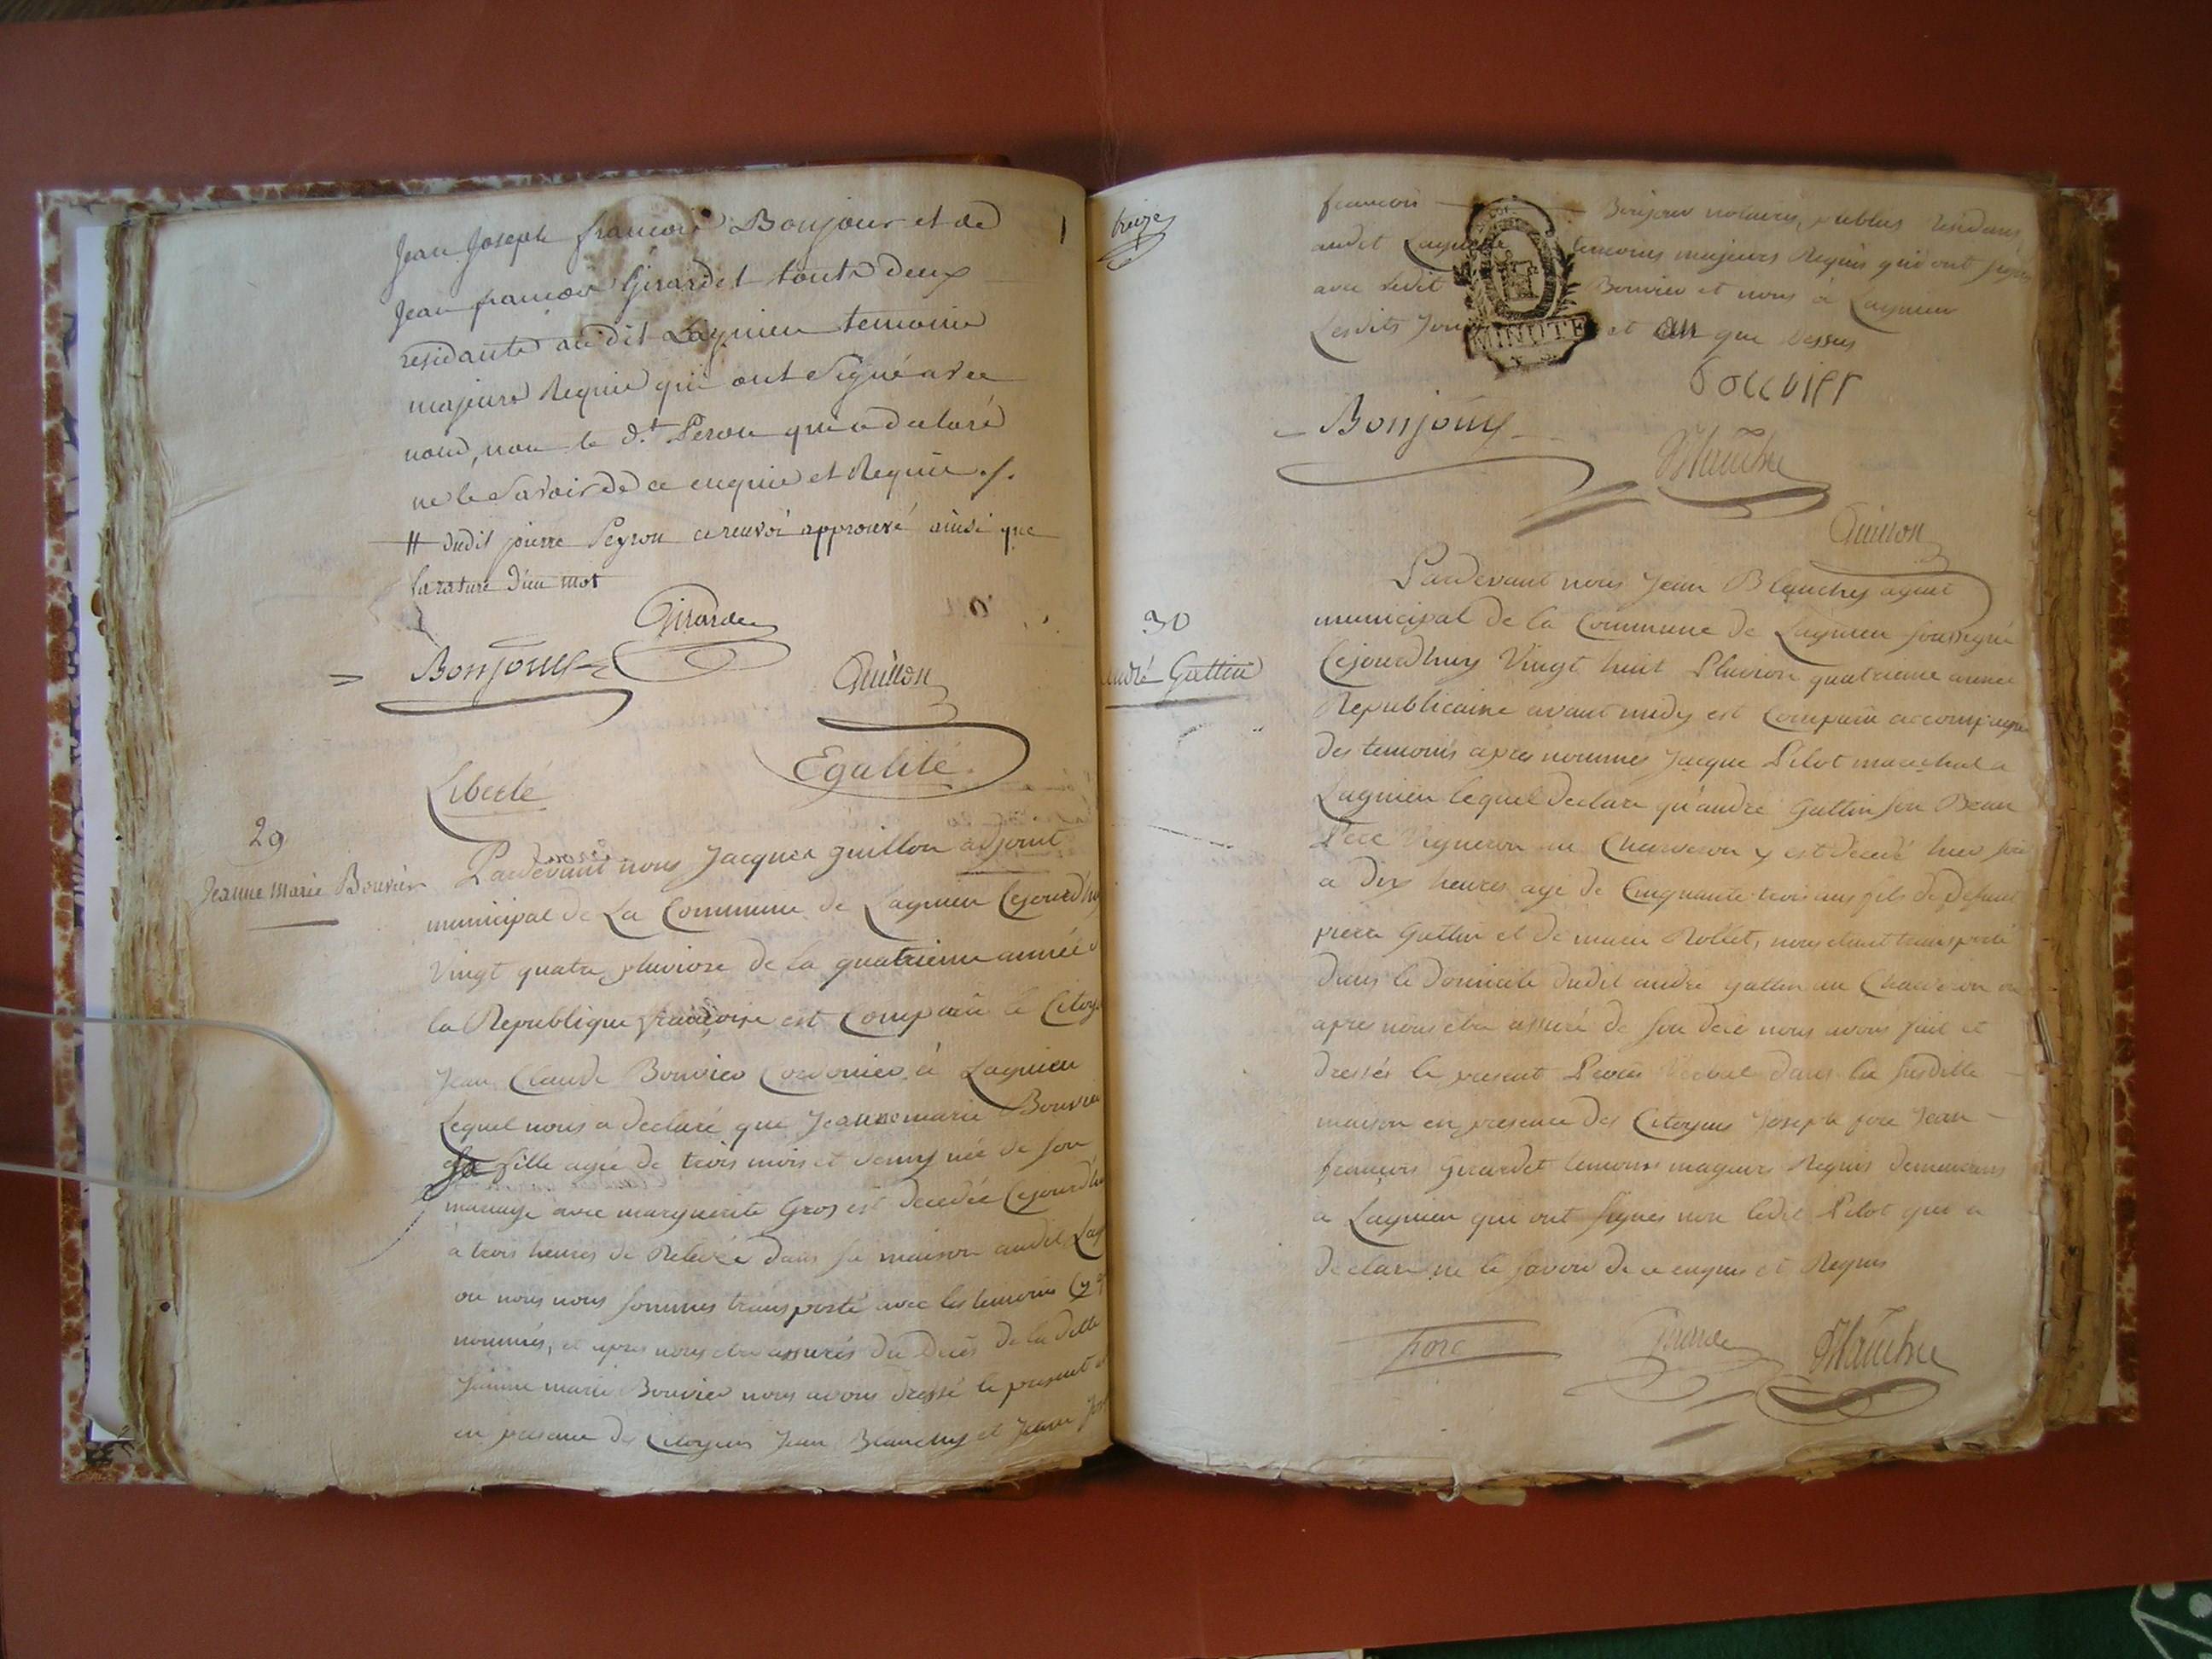 Jean Joseph francois Bonjour et de
Jean francois Girardet touts deux
residants audit Lagnieu temoins
majeurs Requis qui ont signé avec
nous, non le d.t Peron qui a declaré
ne le savoir de ce enquis et Requis ./.
# dudit pierre Peyron ce renvoi approuvé ainsi que
la rature d'un mot
Girarde
Bonjour
Guillon
Liberté
Egalité
29
Jeanne Marie Bouvier
Pardevant nous Jacques Guillon adjoint
municipal de La Commune de Lagnieu Cejourd'huy
Vingt quatre pluviose de la quatrieme année
la Republique françoise est Comparu le Citoy
Jean Claude Bouvier Cordonier à Lagnieu
Lequel nous a declaré que Jeanne marie Bouvier
sa fille agée de trois mois et demy née de son
mariage avec marguerite Gros est decedée Cejourd'hu
à trois heures de Relevée dans sa maison audit Lag
ou nous nous sommes transporté avec les temoins Cy ap
nommés, et apres nous etre assurés du Decès de la ditte
Jeanne marie Bouvier nous avons dressé le present
en presence des Citoyens Jean Blanchy et Jean Jos
treize
francois Bonjour notaires publics residans
audit Lagnieu temoins majeurs Requis qui ont signés
avec ledit Bouvier et nous à Lagnieu
Lesdits Jour et an que dessus
MINUTE
Bouvier
Bonjour
Blanchy
Guillon
30
andré Gattin
Pardevant nous Jean Blanchy agent
municipal de la Commune de Lagnieu soussigné
Cejourd'huy Vingt huit Pluviose quatrieme année
Republicaine avant midy est Comparu accompagné
des temoins apres nommés Jacque Pilot marechal a
Lagnieu lequel declare qu'andré Gattin son Beau
Pere Vigneron au Charveron y est decedé hier soir
a dix heures agé de Cinquante trois ans fils de defunt
pierre Gattin et de marie Rollet, nous etant transporté
dans le Domicile dudit andré gattin au Charveron ou
apres nous etre assuré de son decè nous avons fait et
dressés le present Procès Verbal dans la susditte
maison en presence des Citoyens Joseph fore Jean
francois Girardet temoins mageurs Requis demeurans
a Lagnieu qui ont signés non ledit Pilot qui a
declaré ne le savoir de ce enquis et Requis
fore
Girarde
Blanchy